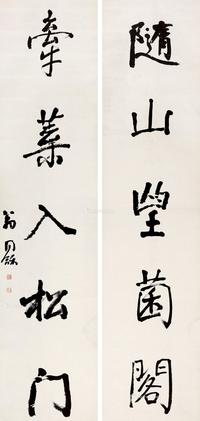 隨山望菌閣
牽葉入松门
翁同龢